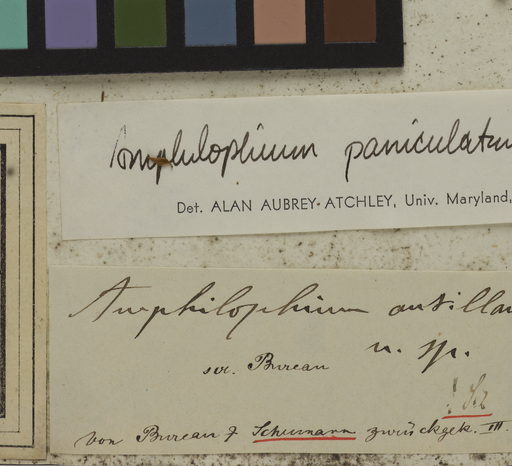 Amphilophium paniculatu
Det. ALAN AUBREY-ATCHLEY, Univ. Maryland,
Amphilophium antillan
n. sp.
Bureau
! Sz
von Bureau & Schumann zurückgek. III.